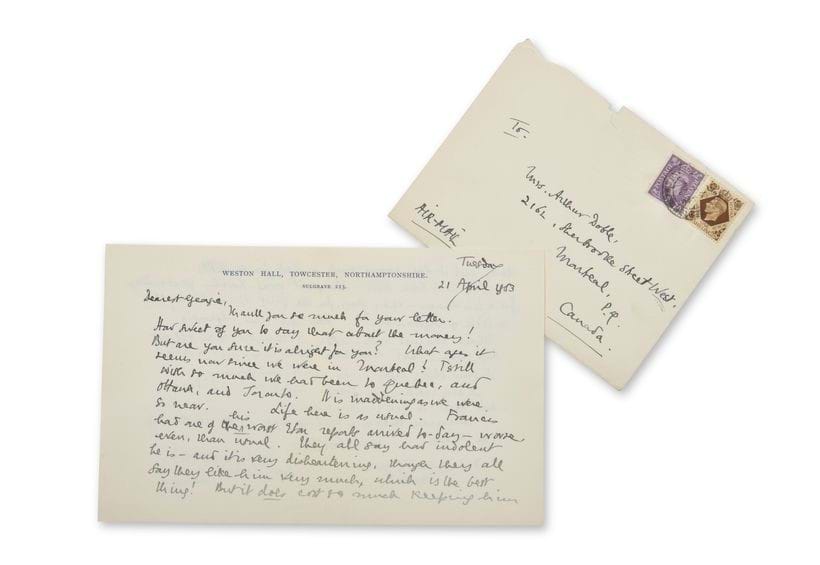 To.
Mrs. Arthur Doble,
2162, Sherbrooke Street West,
Montreal, P.Q.
Canada.
AIR-MAIL
WESTON HALL, TOWCESTER, NORTHAMPTONSHIRE.
SULGRAVE 223.
Tuesday
21 April 1953
Dearest Georgie,
Thank you so much for your letter.
How sweet of you to say that about the money!
But are you sure it is alright for you? What ages it
seems now since we were in Montreal! I still
wish so much we had been to Quebec, and
Ottawa, and Toronto. It is maddening as we were
so near. Life here is as usual. Francis
had one of his worst Eton reports arrived to-day – worse
even, than usual. They all say how indolent
he is – and it is very disheartening, though they all
say they like him very much, which is the best
thing! But it does cost so much keeping him